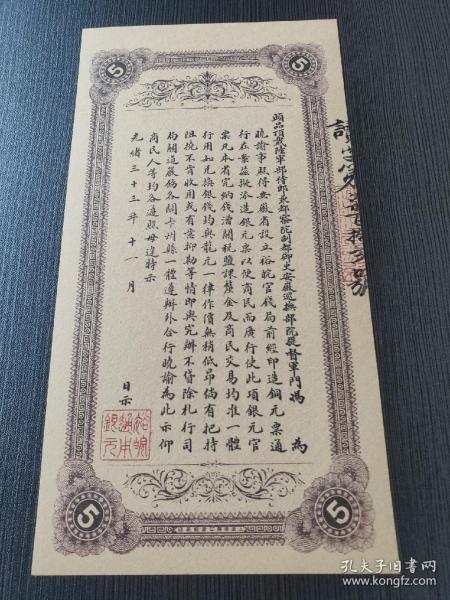 5
5
頭品頂戴陸軍部侍郎兼都察院副都御史安徽巡撫部院提督軍門馮 為
曉諭事照得安徽省設立裕皖官錢局前經印造銅元票通
行在案茲擬添造銀元票以便商民而廣行使此項銀元官
票凡本省完納錢漕關税鹽課釐金及商民交易均准一體
行用如兑換銀錢均與龍元一律作價無稍低昂倘有把持
阻撓不肯收用或有意抑勒等情即與究辦不貸除札行司
局關道嚴飭各關卡州縣一體遵辦外合行曉諭為此示仰
商民人等均各遵照毋違特示
光緒三十三年十一月
日示
裕皖
通本
銀元
5
5
孔夫子旧书网
www.kongfz.com